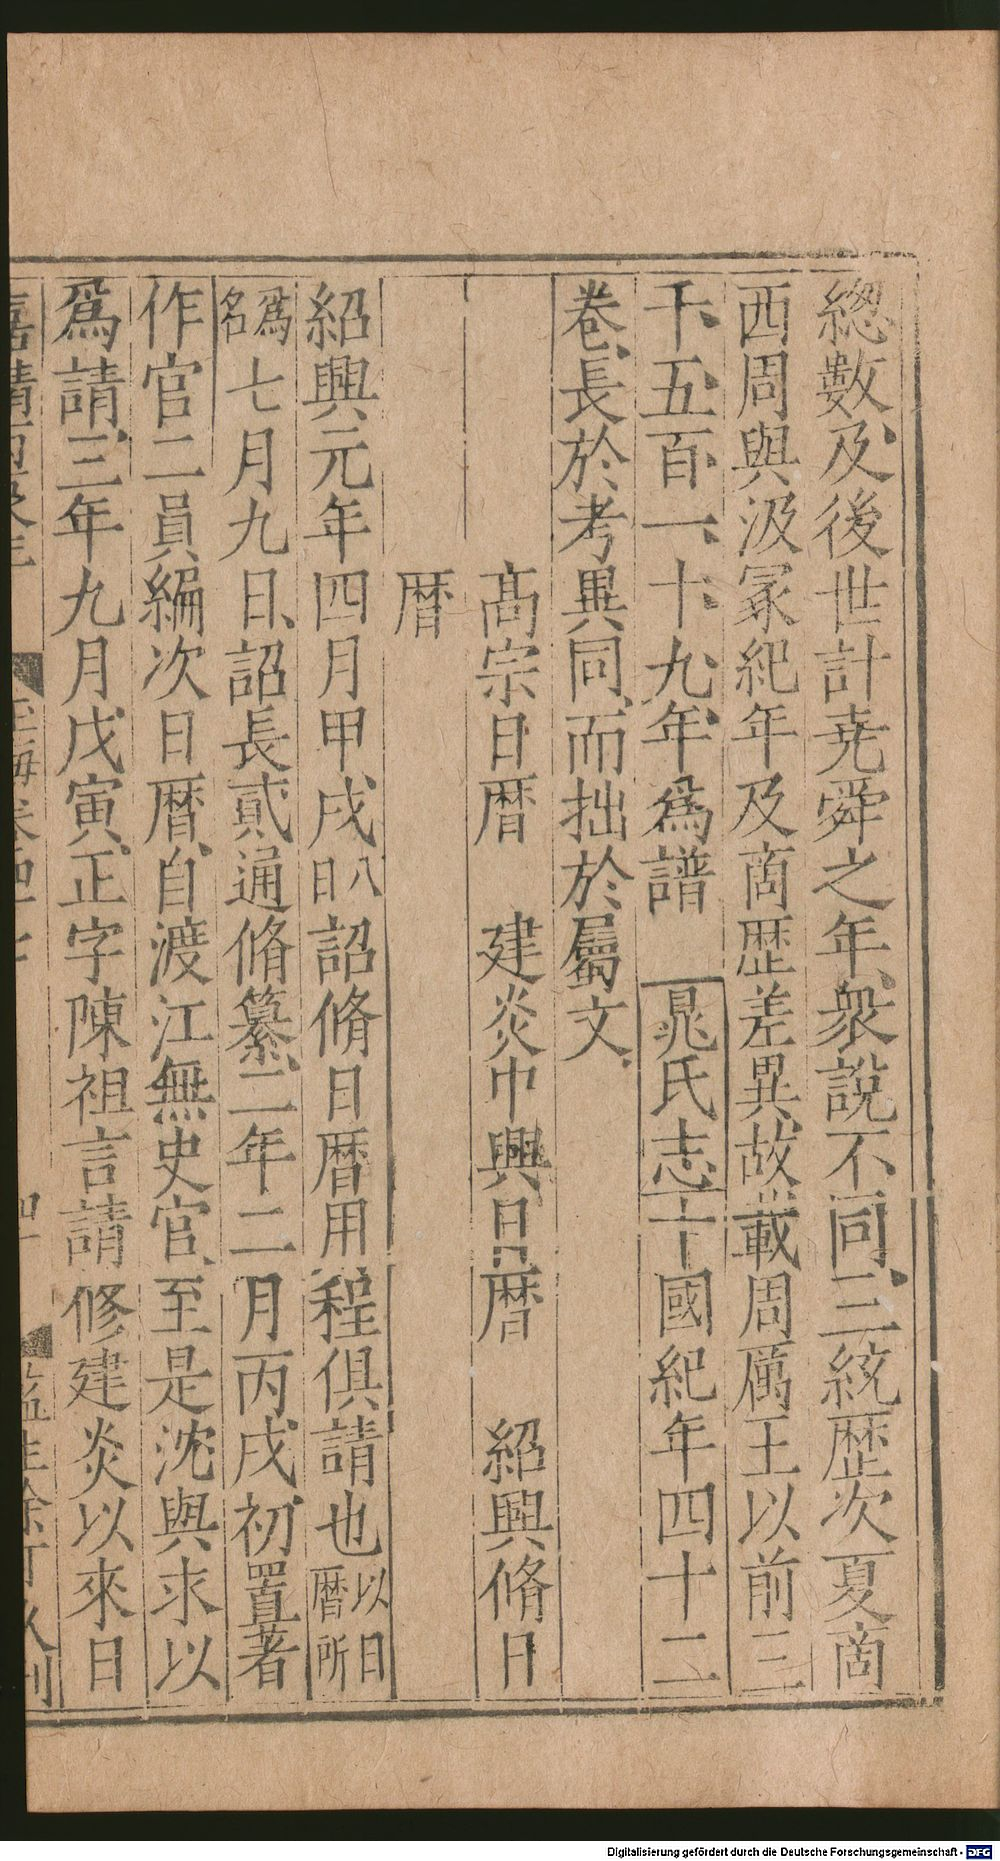 緫數及後世計尭舜之年衆說不同三統歴次夏啇
西周與汲冡紀年及啇歴差異故載周厲王以前三
千五百一十九年爲譜　晁氏志十國紀年四十二
卷長於考異同而拙於屬文
高宗日暦　建炎中興日暦　紹興脩日
暦
紹興元年四月甲戌八日詔脩日暦用程俱請也以日暦所
爲名七月九日詔長貳通脩纂二年二月丙戌初置著
作官二員編次日暦自渡江無史官至是沈與求以
爲請三年九月戊寅正字陳祖言請修建炎以來日
玉海卷四十七
Digitalisierung gefördert durch die Deutsche Forschungsgemeinschaft - DFG